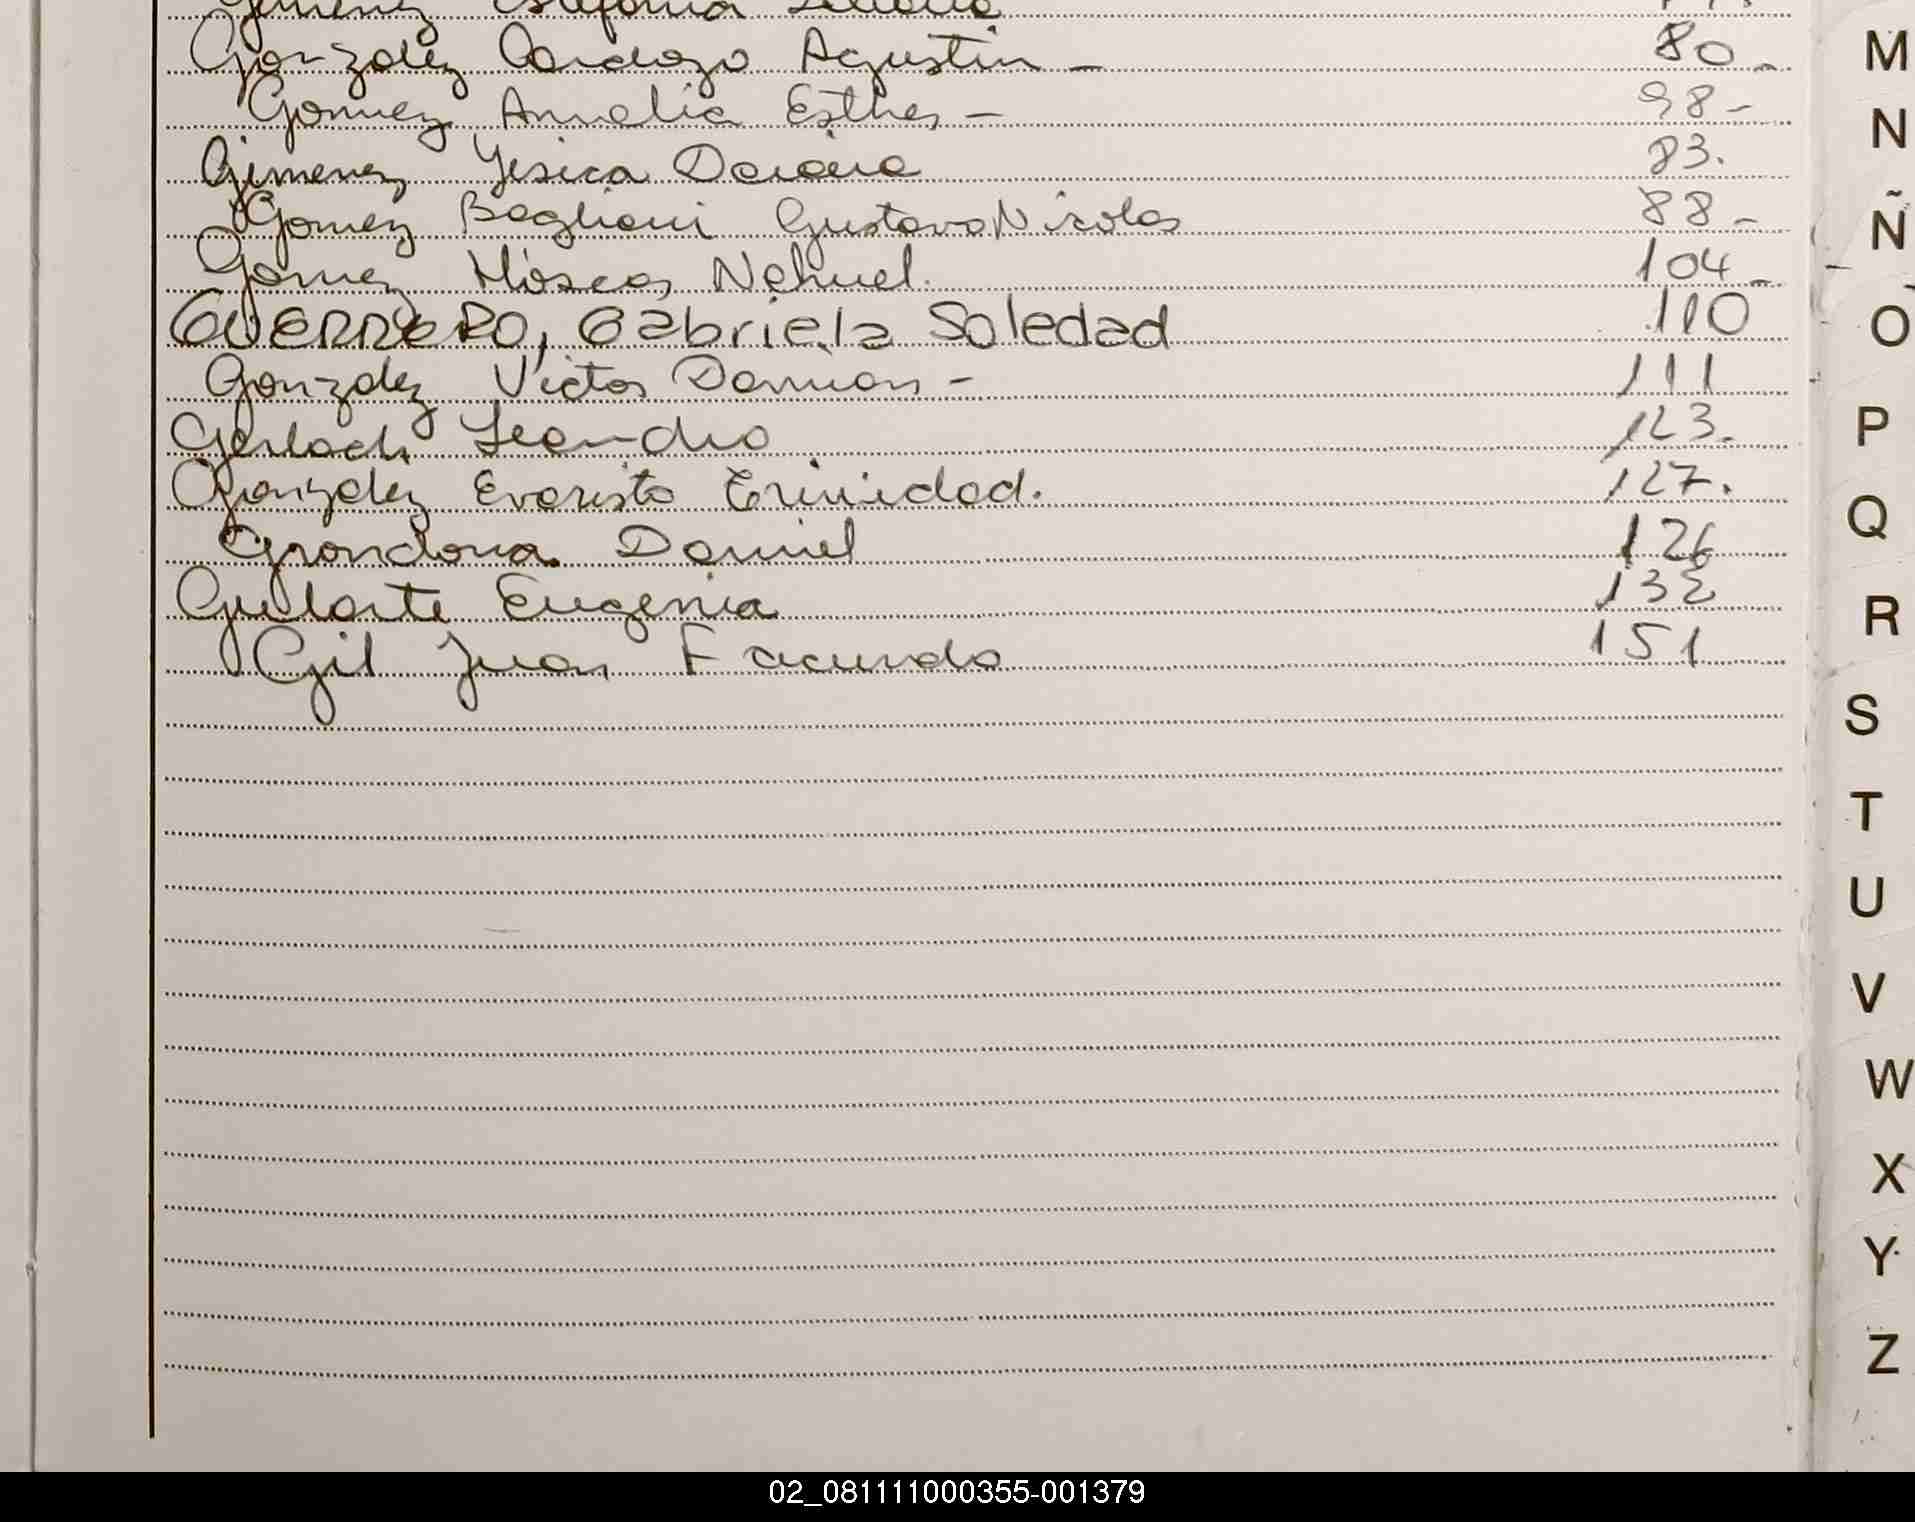 Gimenez Estefania
Gonzalez Cardozo Agustin - 80-
Gomez Amalia Esther - 98-
Gimenez Yesica Daiana 83.
Gomez Baglioni Gustavo Nicolas 88-
Gomez Nahuel. 104-
GUERRERO, Gabriela Soledad 110
Gonzalez Victor Damian - 111
Gerlach Leandro 123.
Gonzalez Evaristo Trinidad. 127.
Grondona Daniel 126
Guilarte Eugenia 132
Gil Juan Facundo 151
M
N
Ñ
O
P
Q
R
S
T
U
V
W
X
Y
Z
02_081111000355-001379